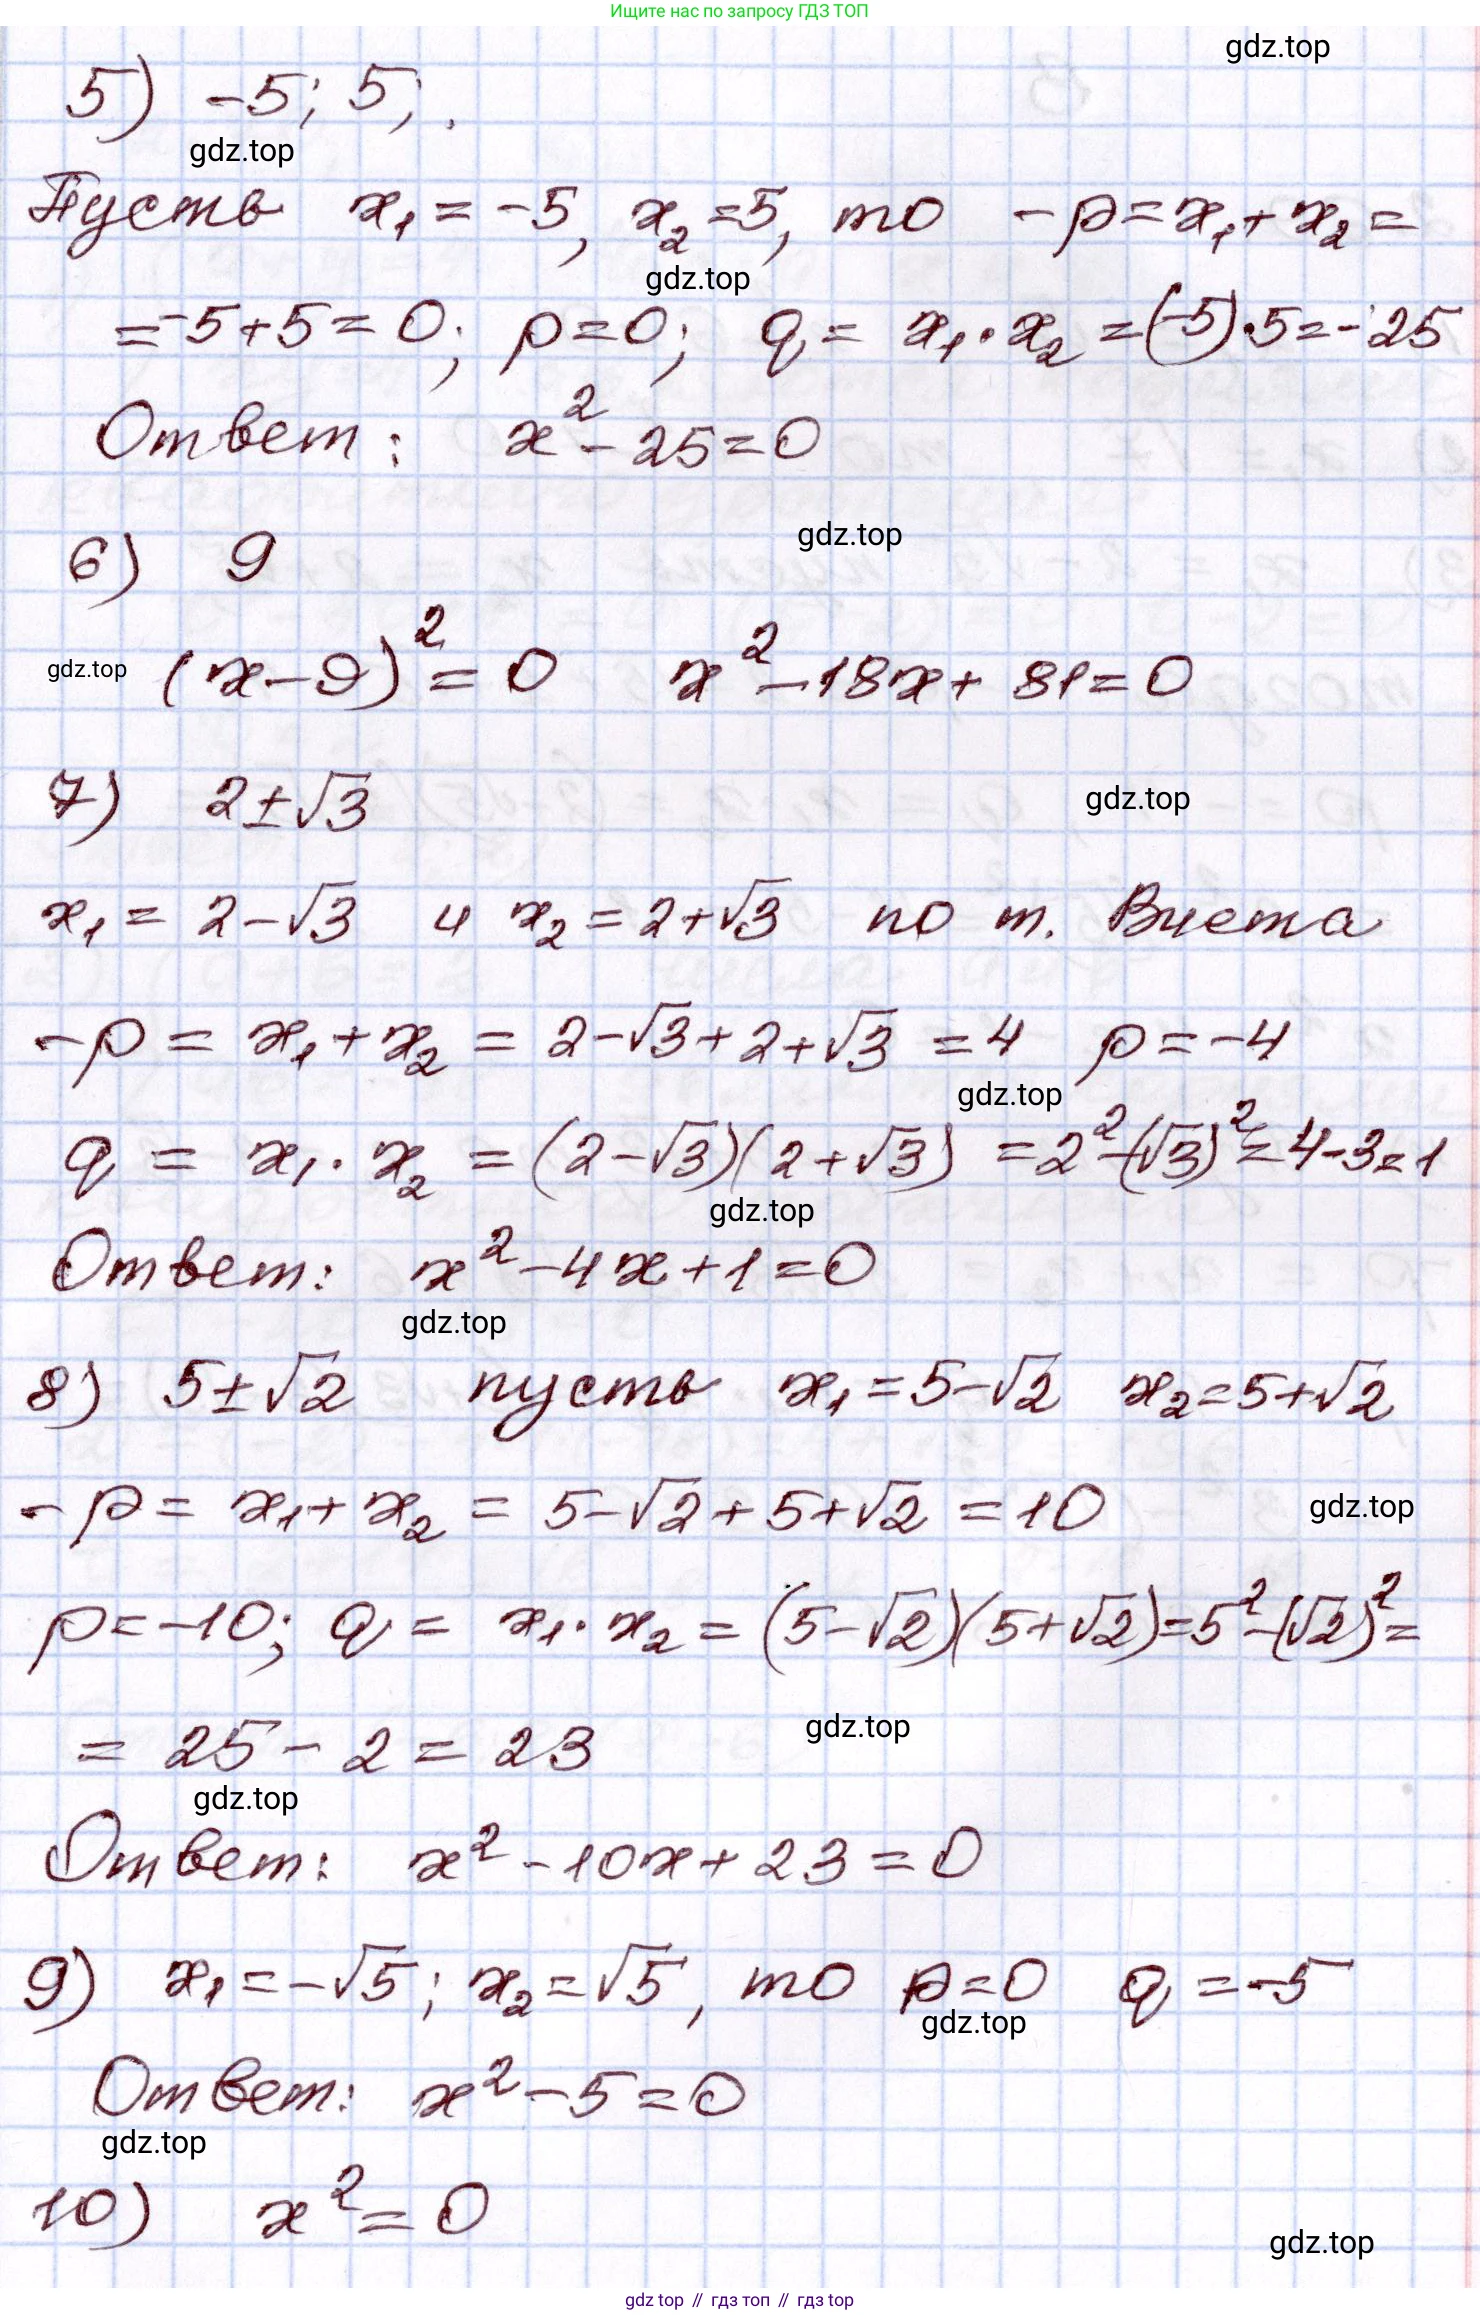 Ищите нас по запросу ГДЗ ТОП
gdz.top
5) -5; 5;.
gdz.top
Пусть x₁ = -5, x₂ = 5, то -p = x₁ + x₂ =
gdz.top
= -5 + 5 = 0; p = 0; q = x₁ · x₂ = (-5) · 5 = -25
Ответ: x² - 25 = 0
gdz.top
6) 9
gdz.top (x - 9)² = 0 x² - 18x + 81 = 0
7) 2 ± √3
gdz.top
x₁ = 2 - √3 и x₂ = 2 + √3 по т. Виета
-p = x₁ + x₂ = 2 - √3 + 2 + √3 = 4 p = -4
gdz.top
q = x₁ · x₂ = (2 - √3)(2 + √3) = 2² - (√3)² = 4 - 3 = 1
gdz.top
Ответ: x² - 4x + 1 = 0
gdz.top
8) 5 ± √2 пусть x₁ = 5 - √2 x₂ = 5 + √2
-p = x₁ + x₂ = 5 - √2 + 5 + √2 = 10
gdz.top
p = -10; q = x₁ · x₂ = (5 - √2)(5 + √2) = 5² - (√2)² =
= 25 - 2 = 23
gdz.top
gdz.top
Ответ: x² - 10x + 23 = 0
9) x₁ = -√5; x₂ = √5, то p = 0 q = -5
gdz.top
Ответ: x² - 5 = 0
gdz.top
10) x² = 0
gdz.top
gdz top // гдз топ // гдз top